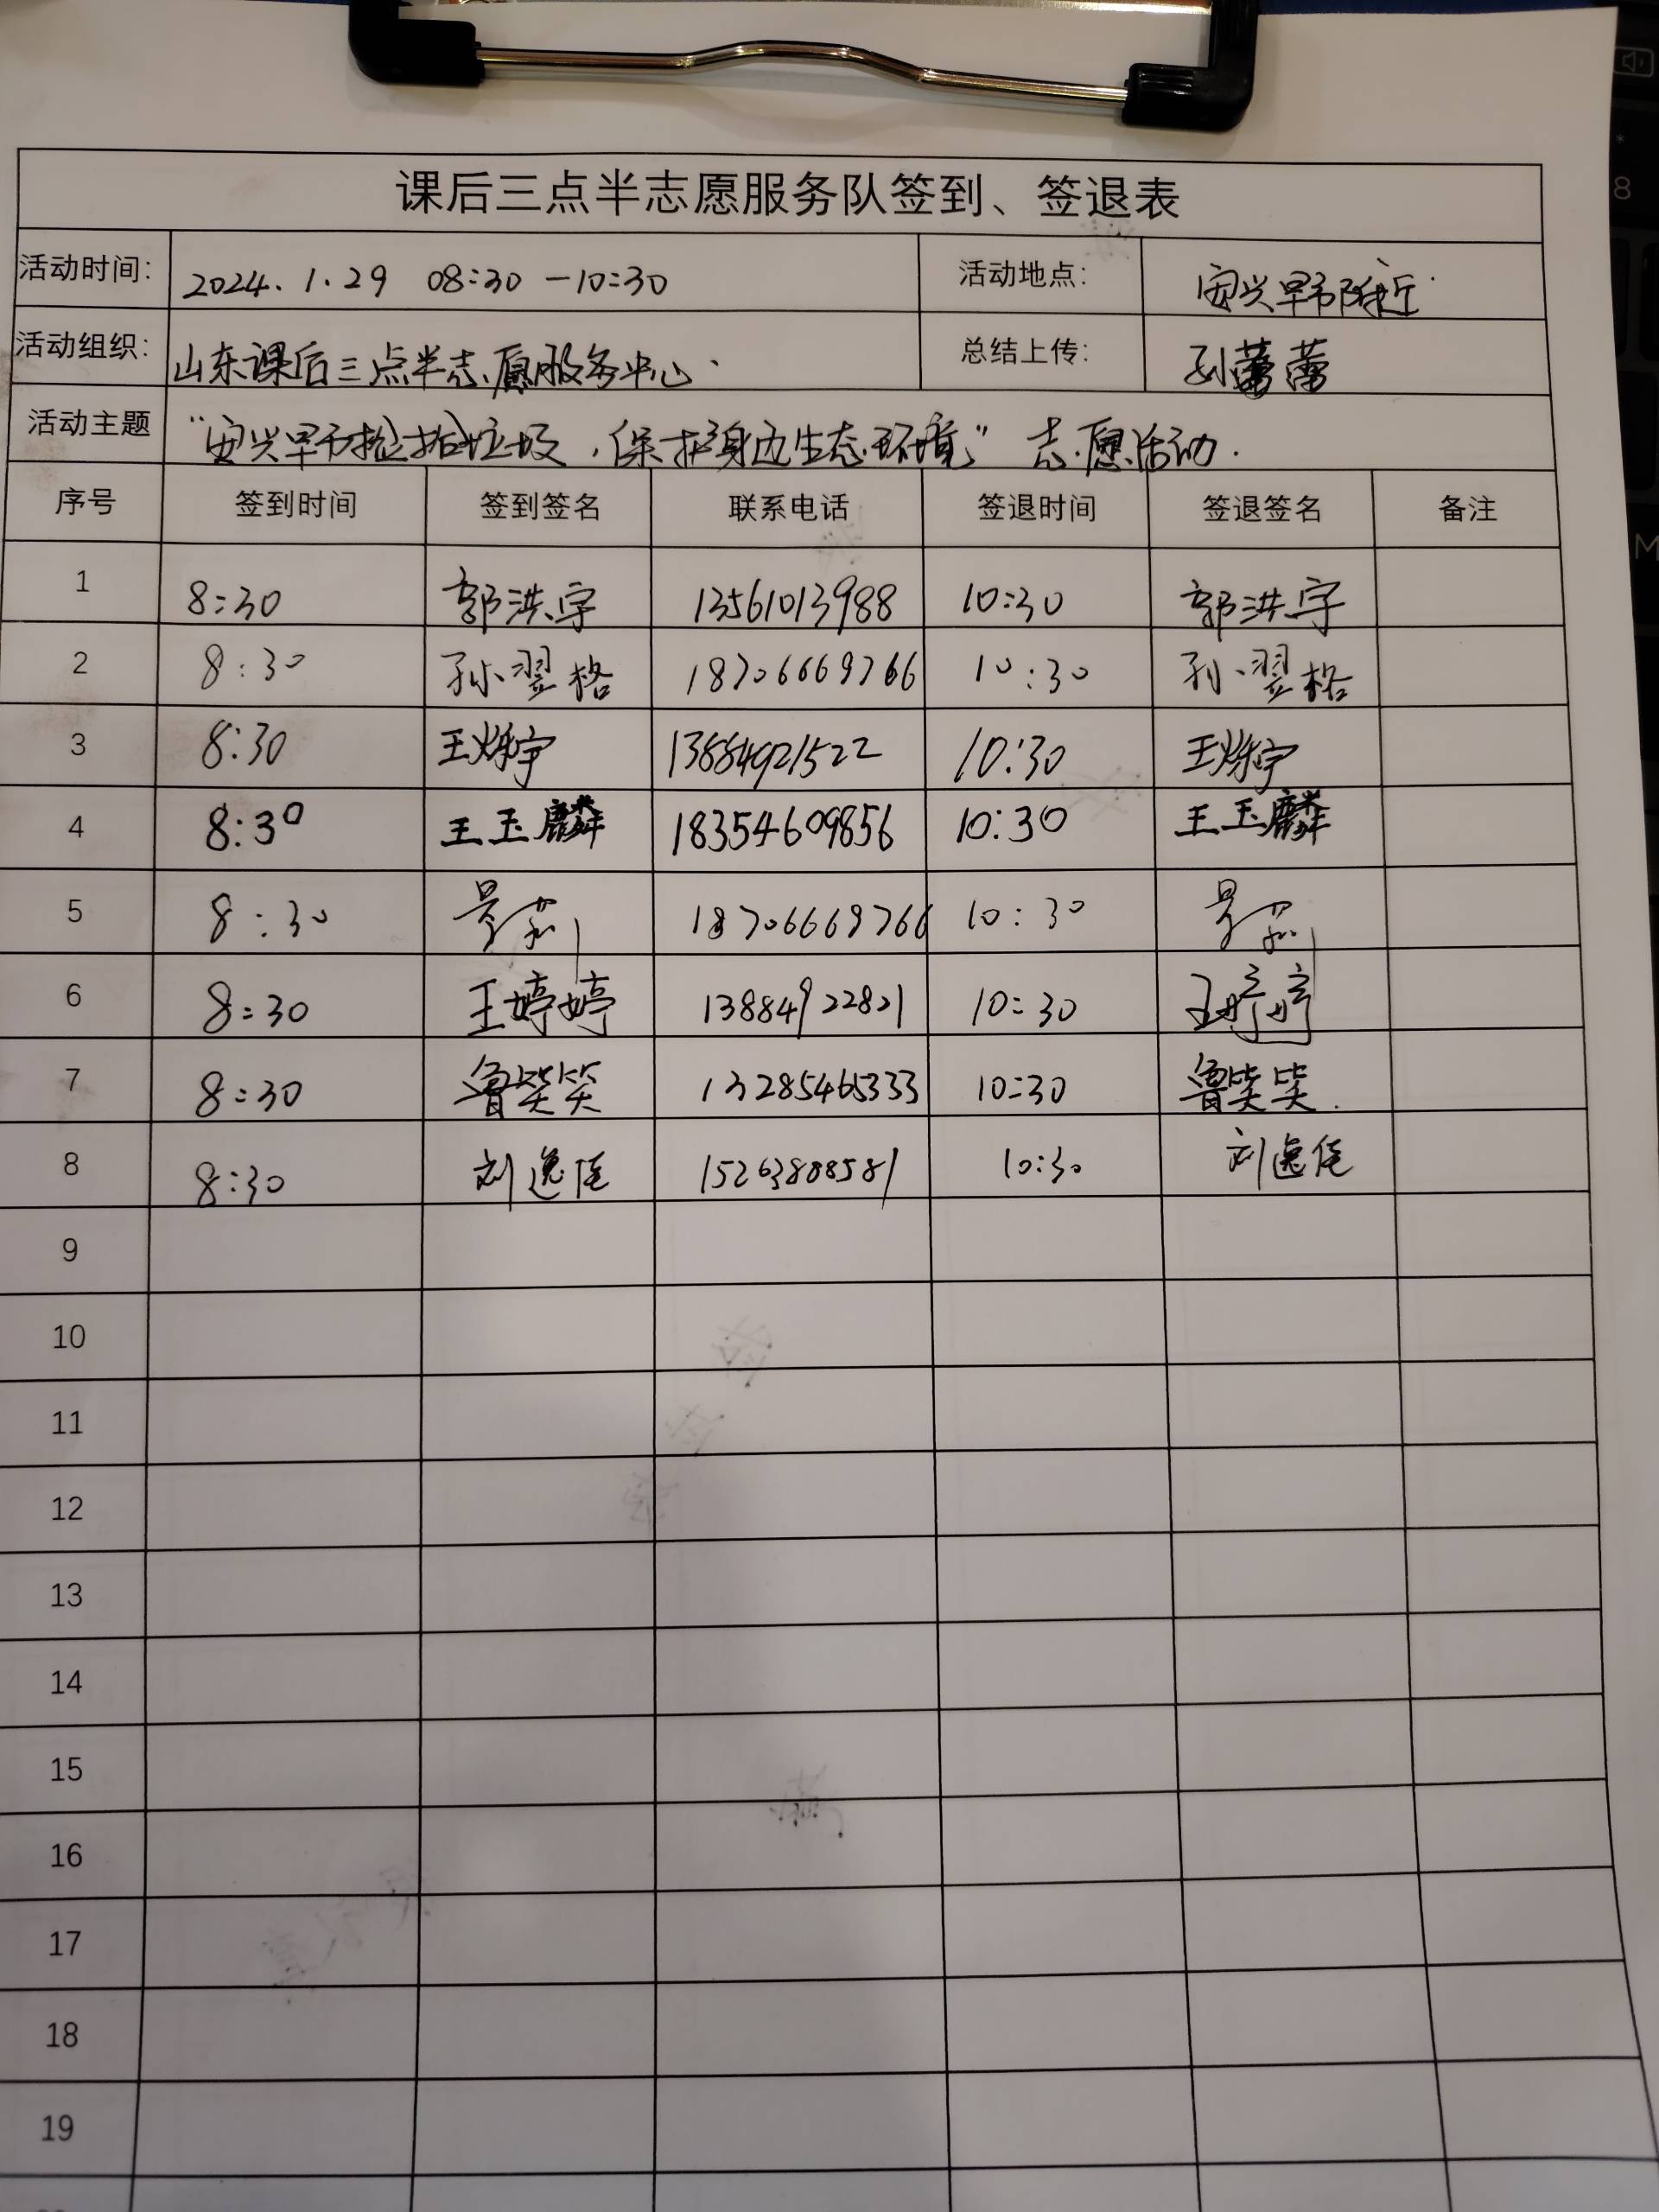 课后三点半志愿服务队签到、签退表
活动时间： 2024.1.29 08:30-10:30 活动地点： 安兴早市附近
活动组织： 山东课后三点半志愿服务中心 总结上传： 孙蕾蕾
活动主题 “安兴早市捡拾垃圾，保护身边生态环境”志愿活动.
序号 签到时间 签到签名 联系电话 签退时间 签退签名 备注
1 8:30 郭洪宇 13561013988 10:30 郭洪宇
2 8:30 孙翌格 18706669766 10:30 孙翌格
3 8:30 王烁宇 13884921522 10:30 王烁宇
4 8:30 王玉麟 18354609856 10:30 王玉麟
5 8:30 18706669766 10:30
6 8:30 王婷婷 13884922821 10:30 王婷婷
7 8:30 鲁笑笑 13285465333 10:30 鲁笑笑.
8 8:30 刘逸佳 15263888581 10:30 刘逸佳
9
10
11
12
13
14
15
16
17
18
19